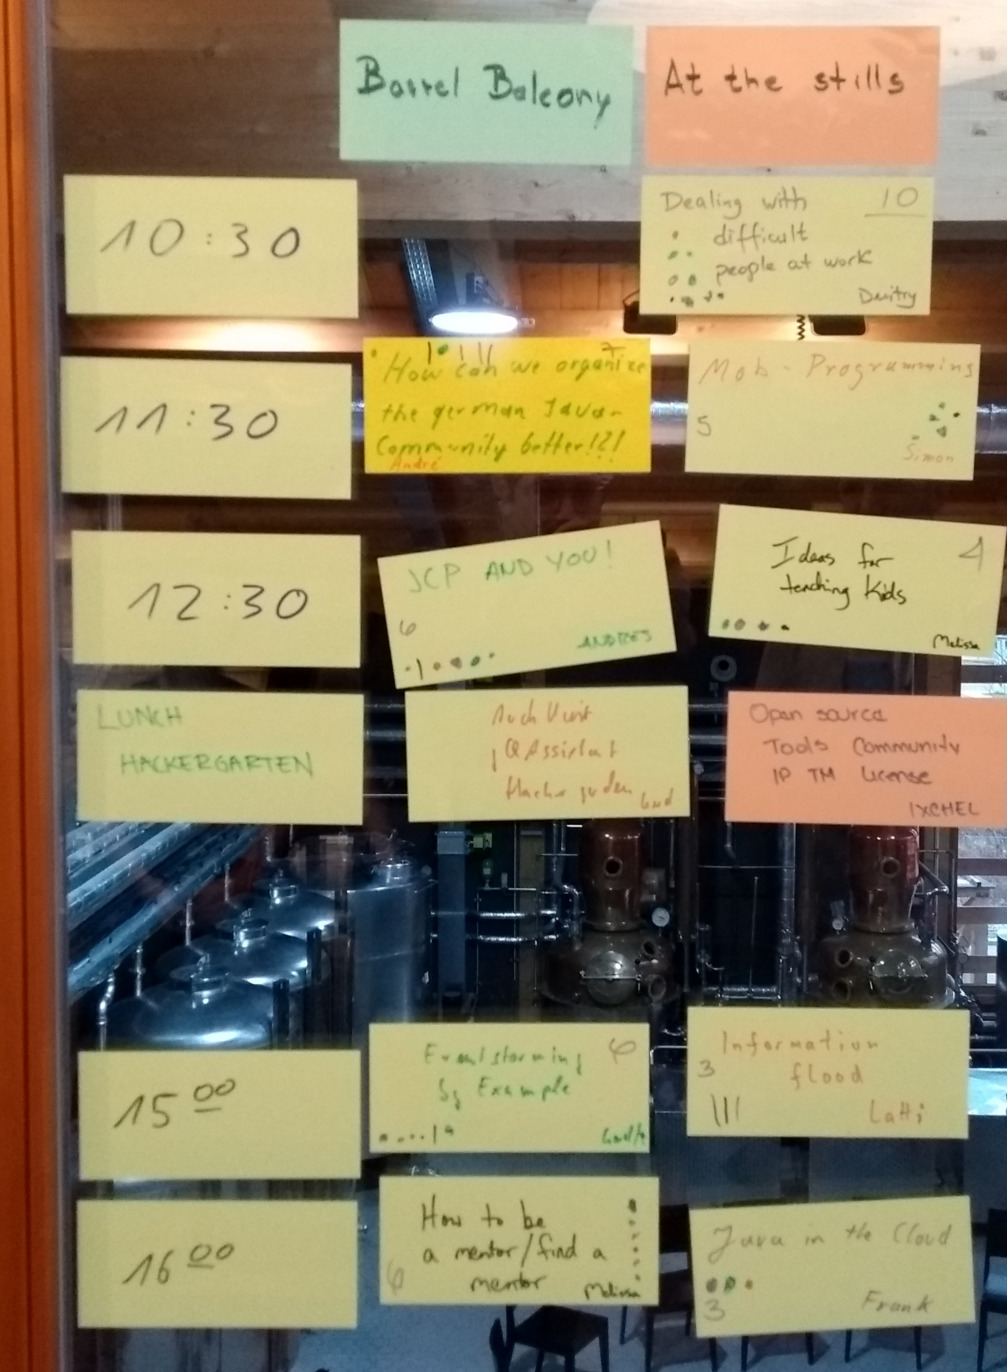 Barrel Balcony
At the stills
10:30
Dealing with 10
difficult
people at work
Dmitry
11:30
How can we organize 7
the german Java-
Community better!?!
André
Mob-Programming
5
Simon
12:30
JCP AND YOU!
6
ANDRES
Ideas for 4
teaching Kids
Melissa
LUNCH
HACKERGARTEN
ArchUnit
jQAssistant
Hackergarden
Open source
Tools Community
IP TM License
IXCHEL
15 00
Eventstorming 6
by Example
Information
3 flood
Latti
16 00
How to be
a mentor/find a
6 mentor
Melissa
Java in the Cloud
3 Frank